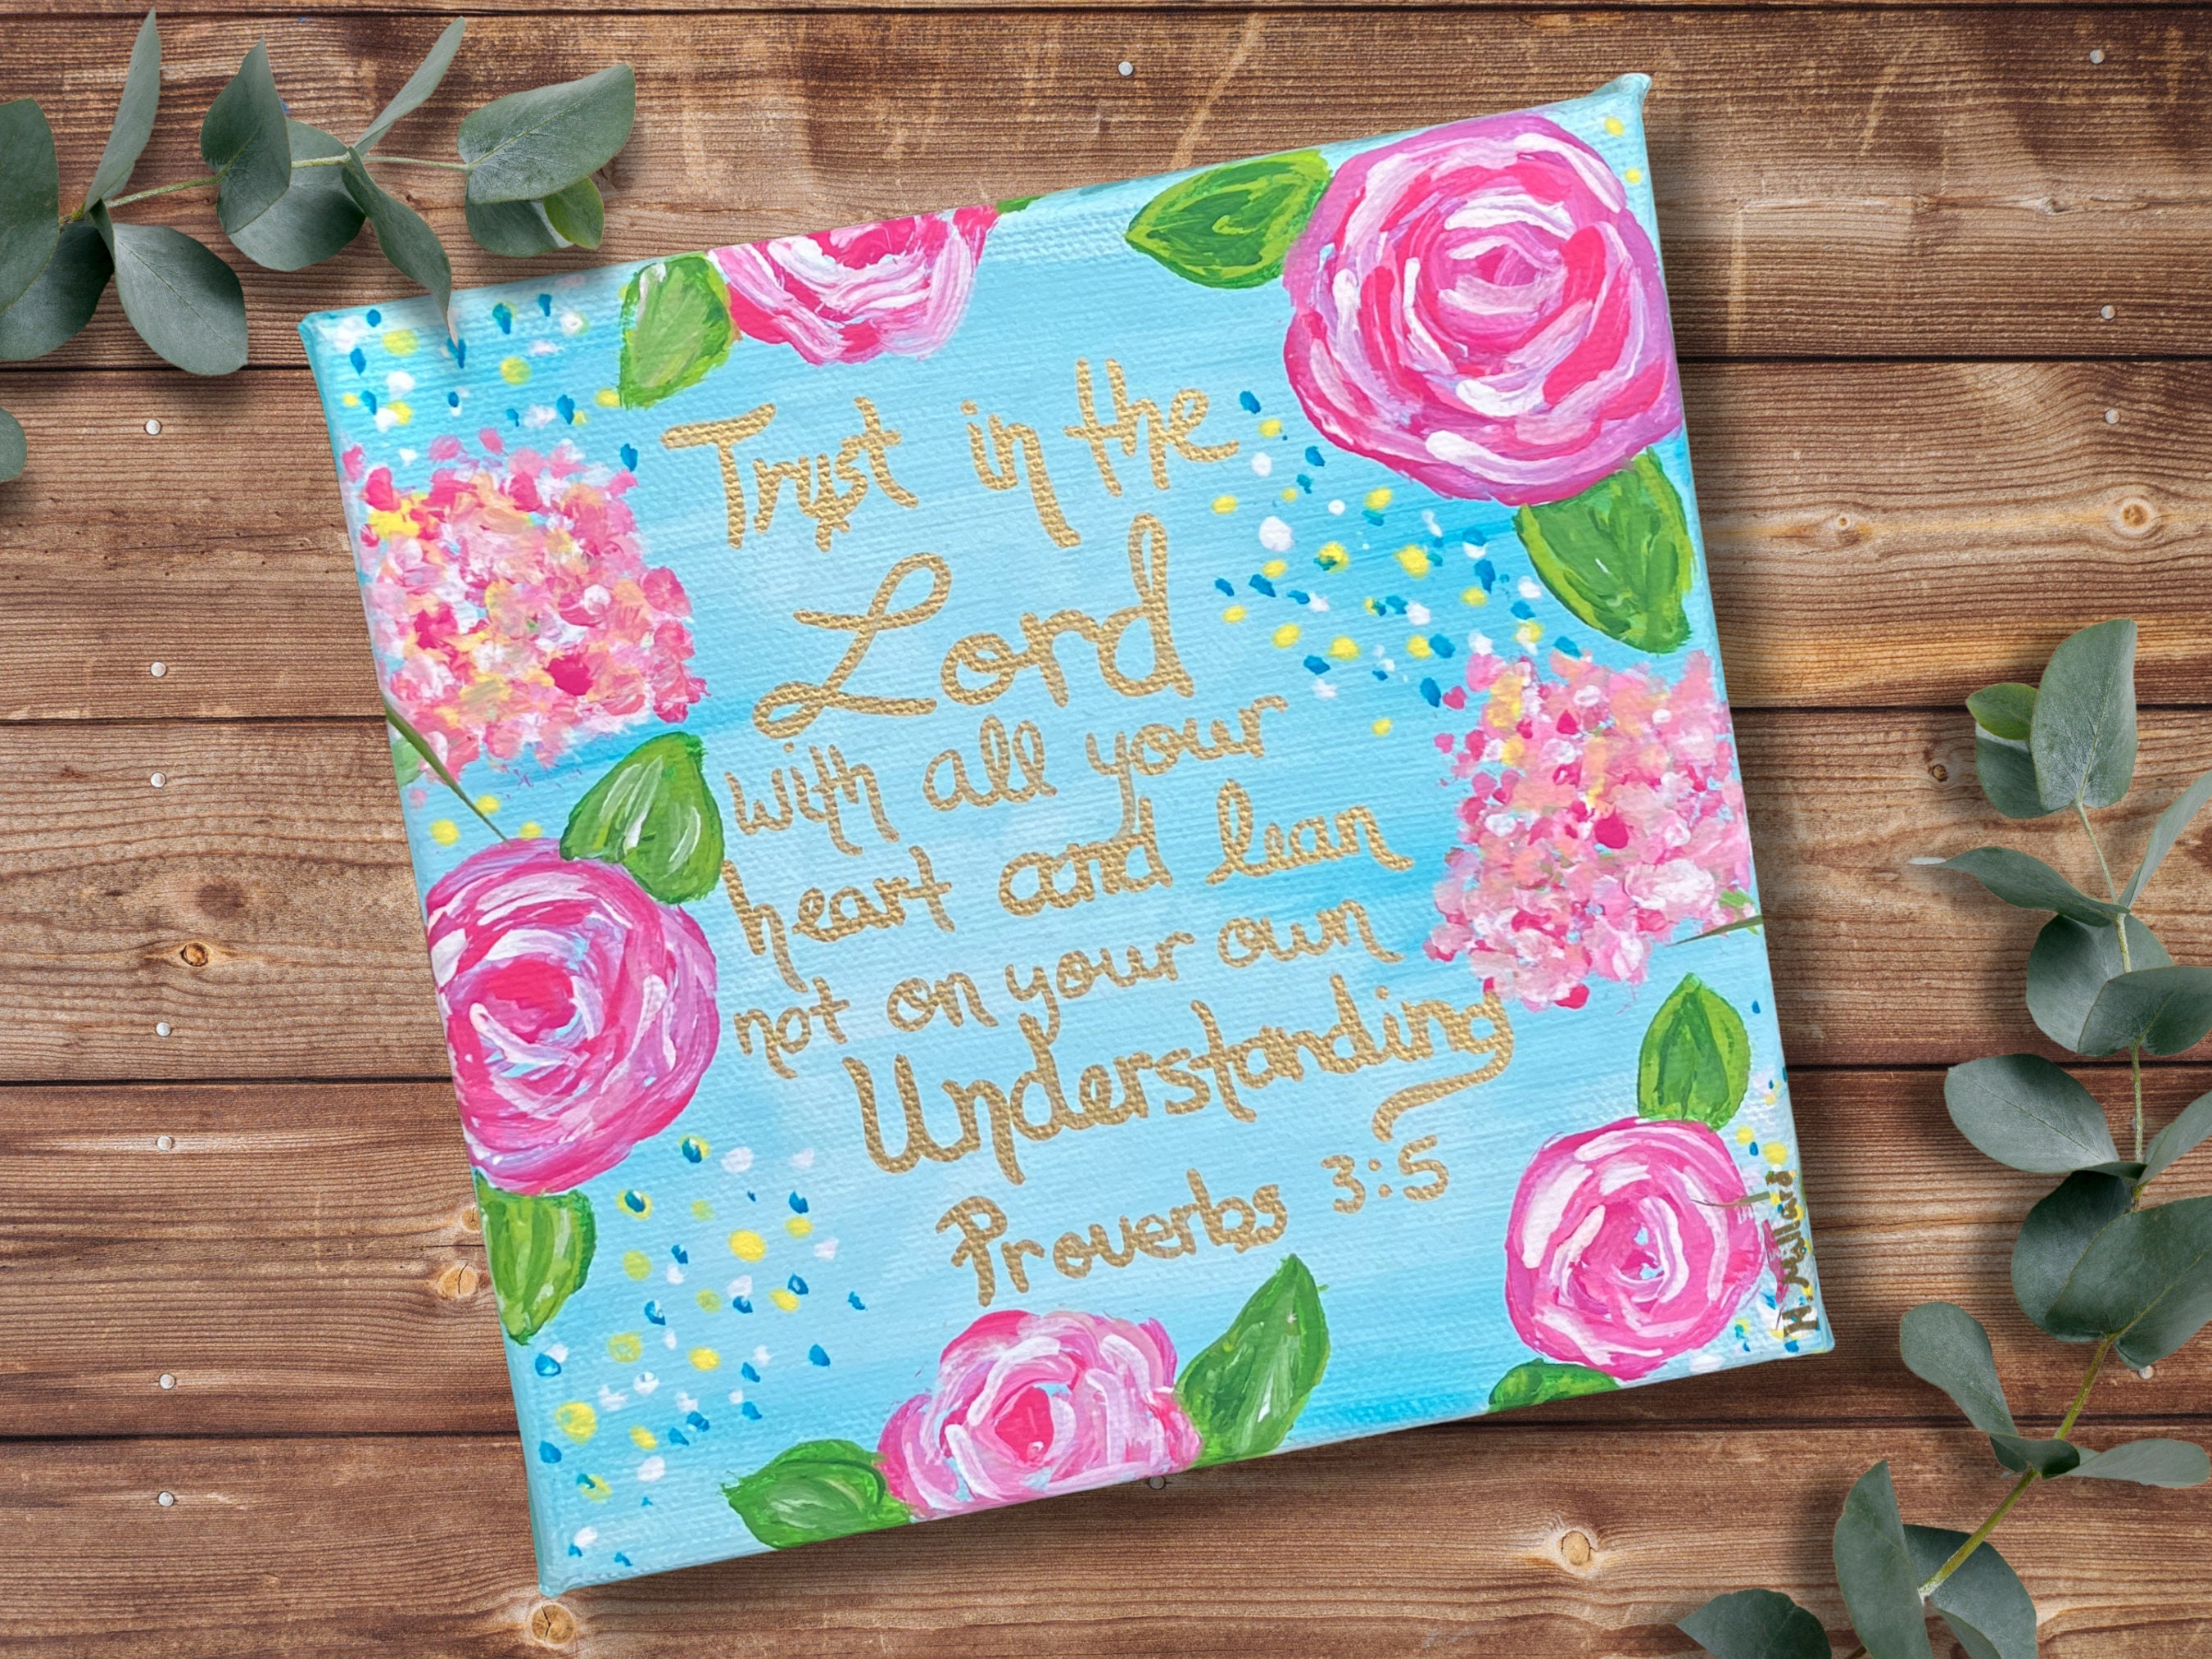 Trust in the
Lord
with all your
heart and lean
not on your own
Understanding
Proverbs 3:5
H. Mallard